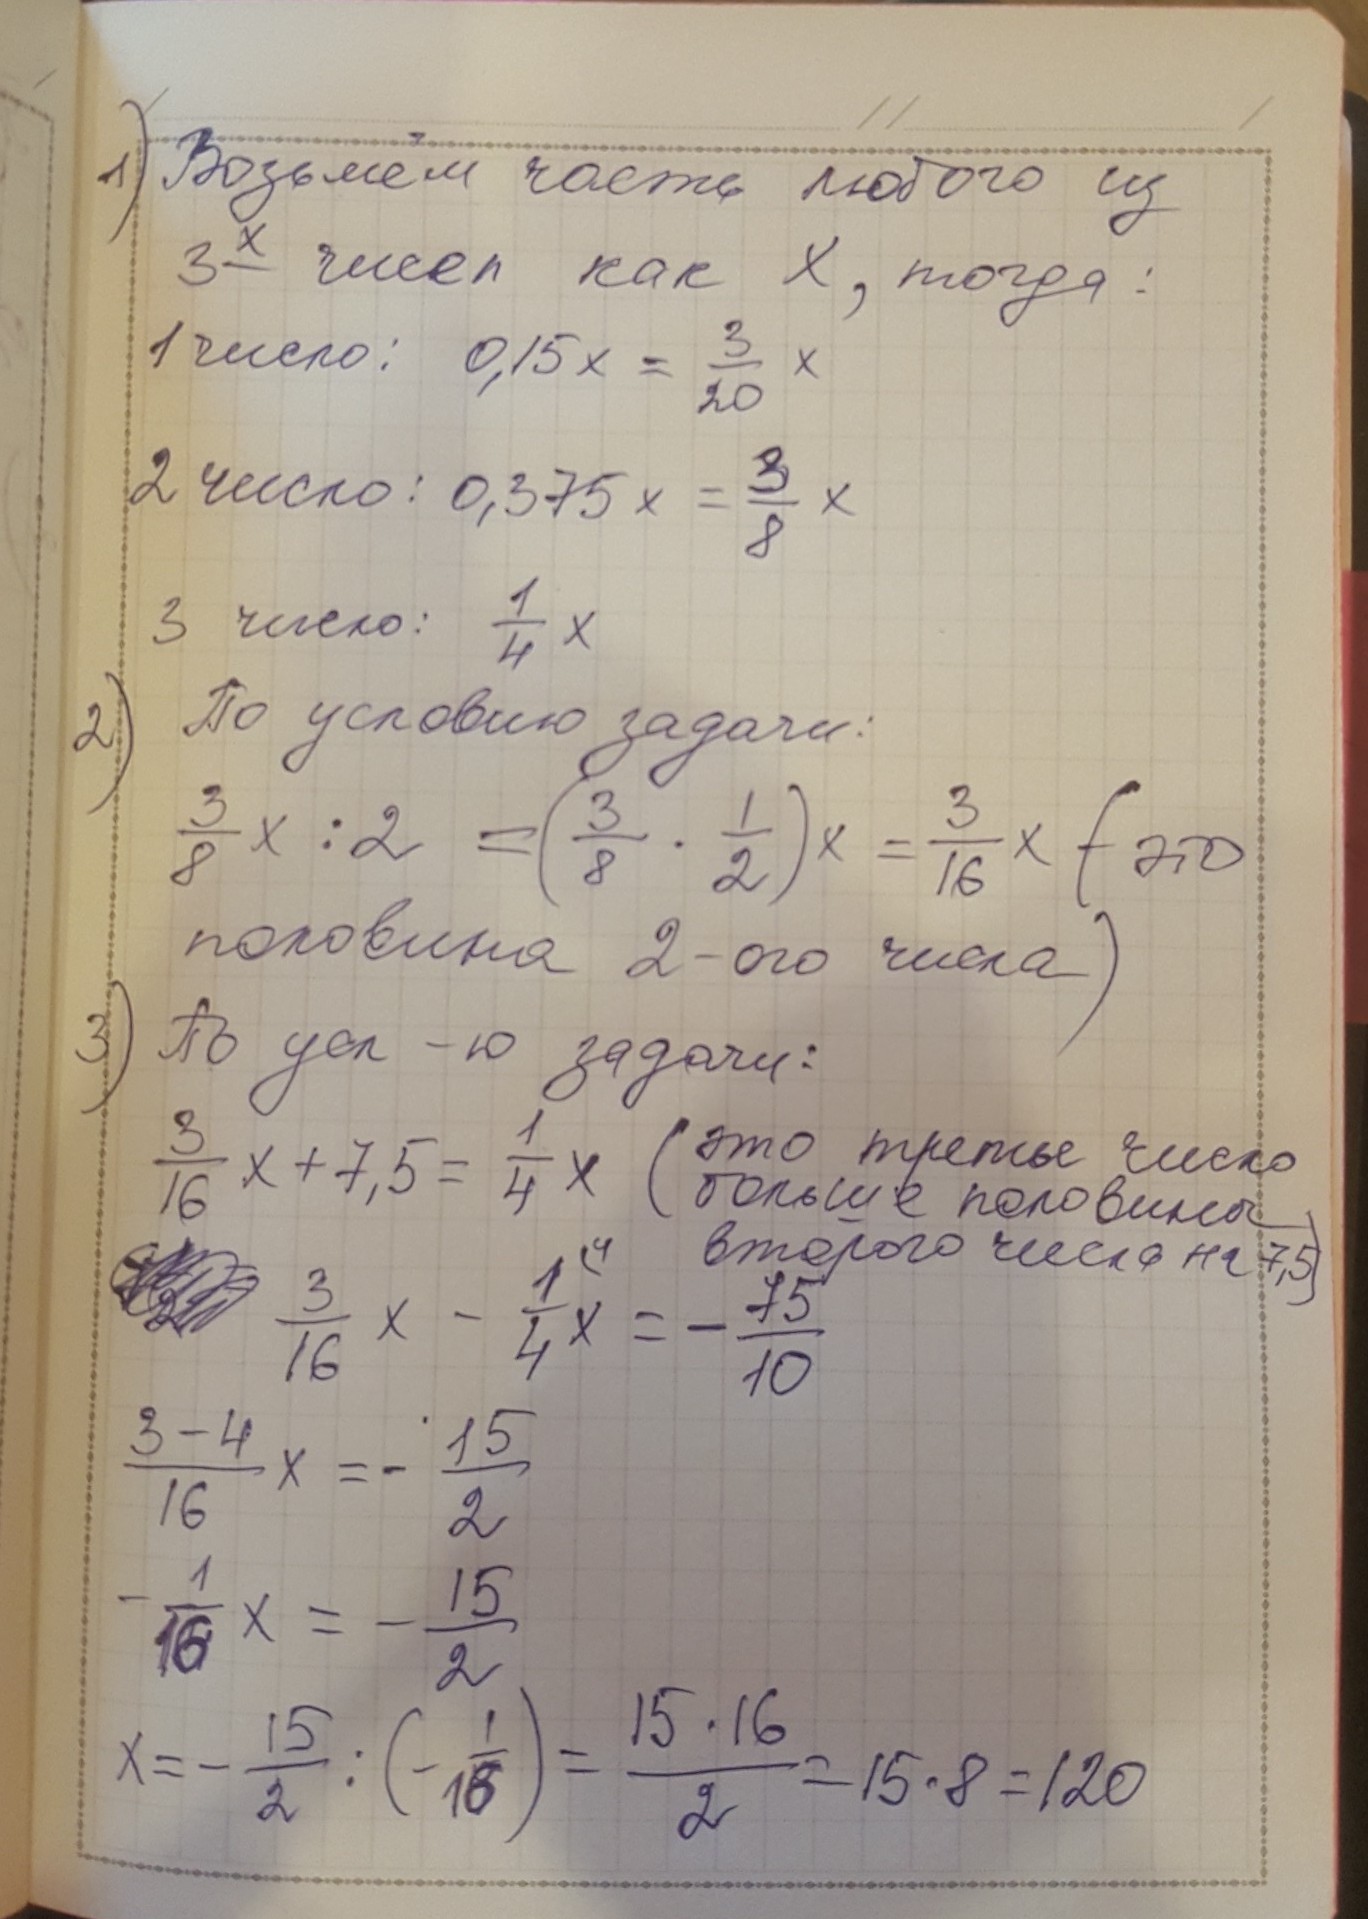 1) Возьмём часть любого из
3-х чисел как X, тогда:
1 число: 0,15x = 3/20 x
2 число: 0,375x = 3/8 x
3 число: 1/4 x
2) По условию задачи:
3/8 x : 2 = (3/8 · 1/2)x = 3/16 x (это
половина 2-ого числа)
3) По усл-ю задачи:
3/16 x + 7,5 = 1/4 x (это третье число
больше половины
второго числа на 7,5)
3/16 x - 1/4 x = - 75/10
(3-4)/16 x = - 15/2
- 1/16 x = - 15/2
x = - 15/2 : (- 1/16) = (15·16)/2 = 15·8 = 120